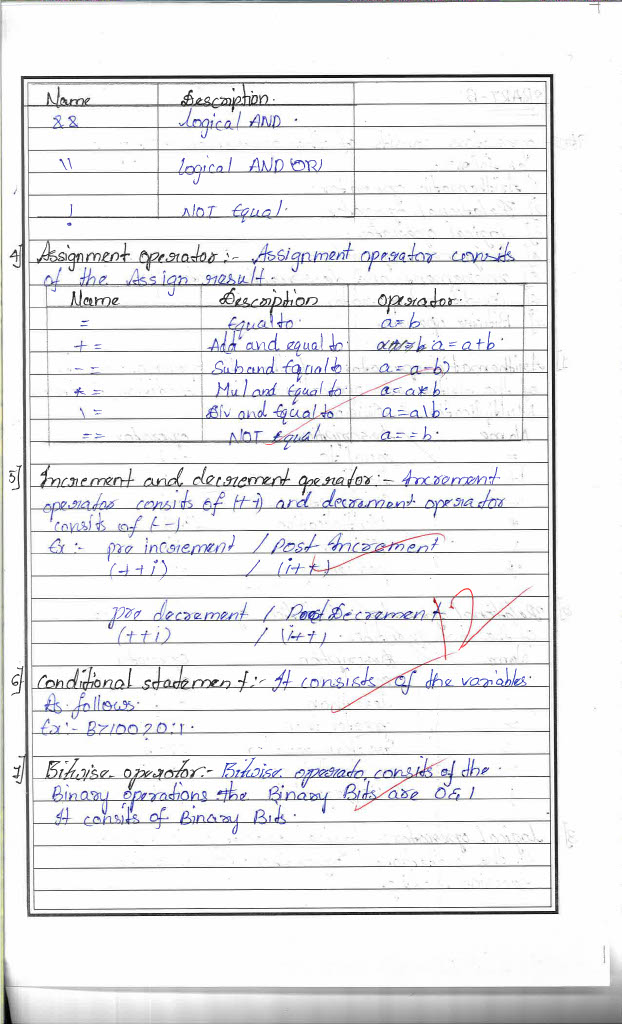 Name Description.
&& logical AND .
\\ logical AND (OR)
! NOT Equal.
4] Assignment operator :- Assignment operator consits
of the Assign result.
Name Description operator.
= Equal to. a=b
+= Add and equal to. a=a+b.
-= Sub and Equal to a=a-b)
*= Mul and Equal to. a=a*b
\= Div and Equal to. a=a\b.
== NOT Equal a==b.
5] Increment and decrement operator :- Increment
operator consits of (+i) and decrement operator
consits of (-).
Ex :- pre increment / Post Increment
(++i) / (i++)
pre decrement / Post Decrement
(++i) / (i++)
12
6] Conditional statement :- It consists of the variables.
As follows.
Ex :- B>100?0:1.
7] Bitwise operator :- Bitwise operato, consits of the
Binary operations the Binary Bits are 0 & 1
It consits of Binary Bits.